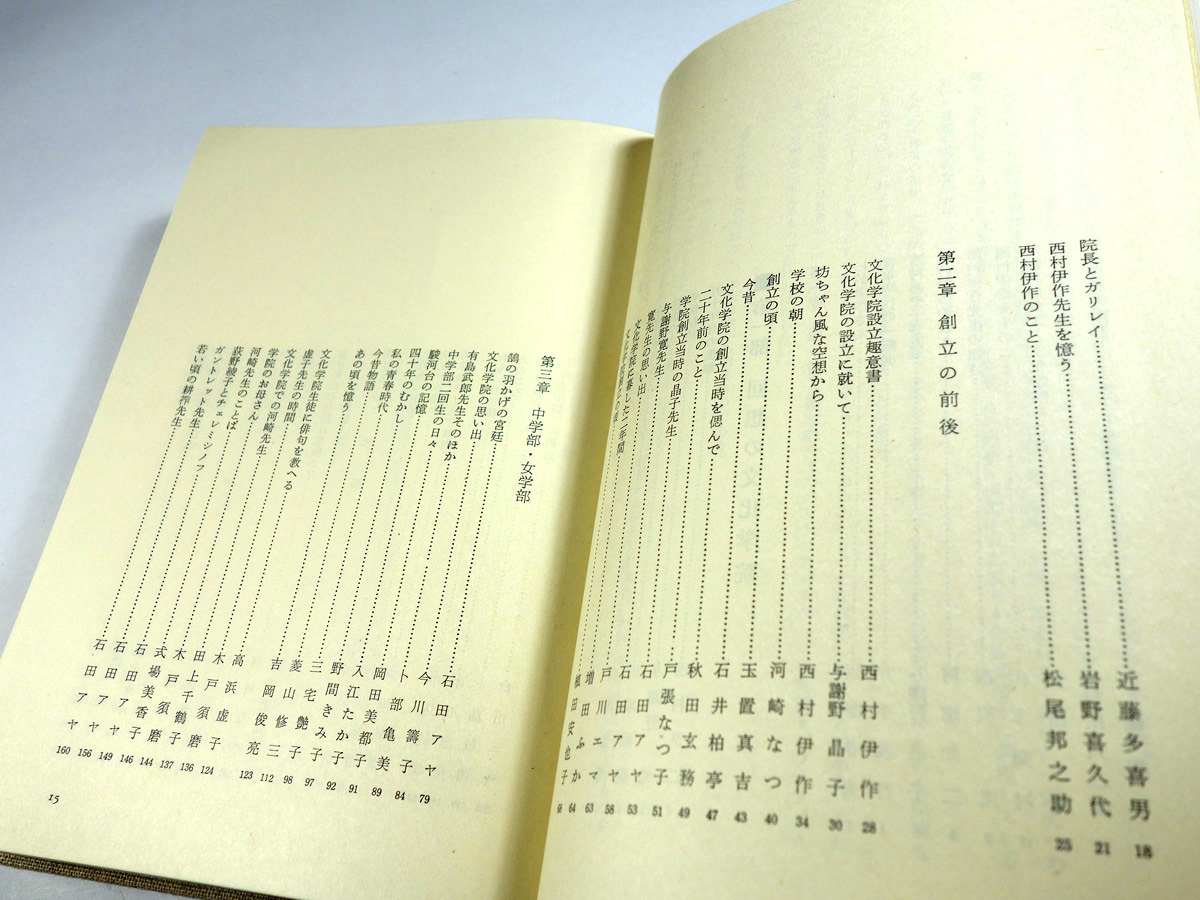 院長とガリレイ……近藤多喜男 18
西村伊作先生を憶う……岩野喜久代 21
西村伊作のこと……松尾邦之助 25
第二章 創立の前後
文化学院設立趣意書……西村伊作 28
文化学院の設立に就いて……与謝野晶子 30
坊ちゃん風な空想から……西村伊作 34
学校の朝……河崎なつ 40
創立の頃……玉置真吉 43
今昔……石井柏亭 47
文化学院の創立当時を偲んで……秋田玄務 49
二十年前のこと……戸張なつ子 51
学院創立当時の晶子先生……石田アヤ 53
与謝野寛先生……石田アヤ 58
寛先生の思い出……戸川エマ 63
文化学院と暮した二年間……増田ふか 64
……植田安也子 68
第三章 中学部・女学部
鵠の羽かげの宮廷……石田アヤ 79
文化学院の思い出……今川籌子 84
有島武郎先生そのほか……卜部亀美 89
中学部二回生の日々……岡田美都子 91
駿河台の記憶……入江たか子 92
四十年のむかし……野間きみ 97
私の青春時代……三宅艶子 98
今昔物語……菱山修三 112
あの頃を憶う……吉岡俊亮 123
文化学院生徒に俳句を教へる……高浜虚子 124
虚子先生の時間……木戸須磨 136
文化学院での河崎先生……田上千鶴子 137
学院のお母さん……木戸須磨 144
河崎先生のことば……式場美香子 146
荻野綾子とチェレミシノフ……石田アヤ 149
ガントレット先生……石田アヤ 156
若い頃の耕筰先生……石田アヤ 160
15